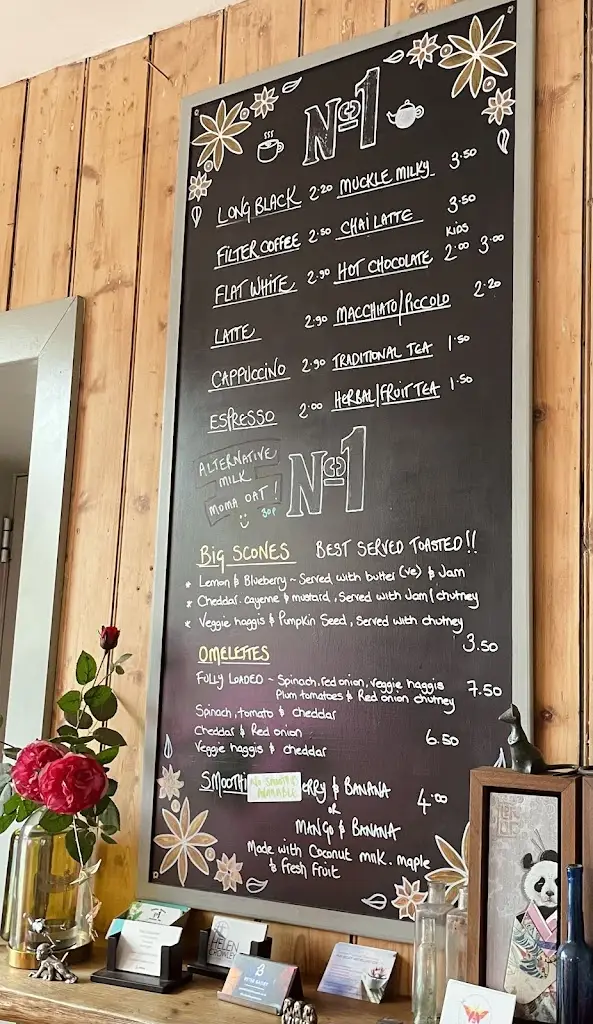 No1
LONG BLACK 2.20 MUCKLE MILKY 3.50
FILTER COFFEE 2.50 CHAI LATTE 3.50
FLAT WHITE 2.90 HOT CHOCOLATE KIDS 2.00 3.00
LATTE 2.90 MACCHIATO/PICCOLO 2.20
CAPPUCCINO 2.90 TRADITIONAL TEA 1.50
ESPRESSO 2.00 HERBAL/FRUIT TEA 1.50
ALTERNATIVE
MILK
MOMA OAT!
30P
No1
BIG SCONES BEST SERVED TOASTED!!
* Lemon & Blueberry ~ Served with butter (ve) & Jam
* Cheddar, cayenne & mustard, Served with Jam/chutney
* Veggie haggis & Pumpkin Seed, Served with chutney
3.50
OMELETTES
FULLY LOADED ~ Spinach, red onion, veggie haggis
Plum tomatoes & Red onion chutney 7.50
Spinach, tomato & cheddar
Cheddar & Red onion 6.50
Veggie haggis & cheddar
SMOOTHI ERRY & BANANA 4.00
NO SMOOTHIES
AVAILABLE
or
MANGO & BANANA
Made with Coconut milk, maple
& fresh fruit
HELEN